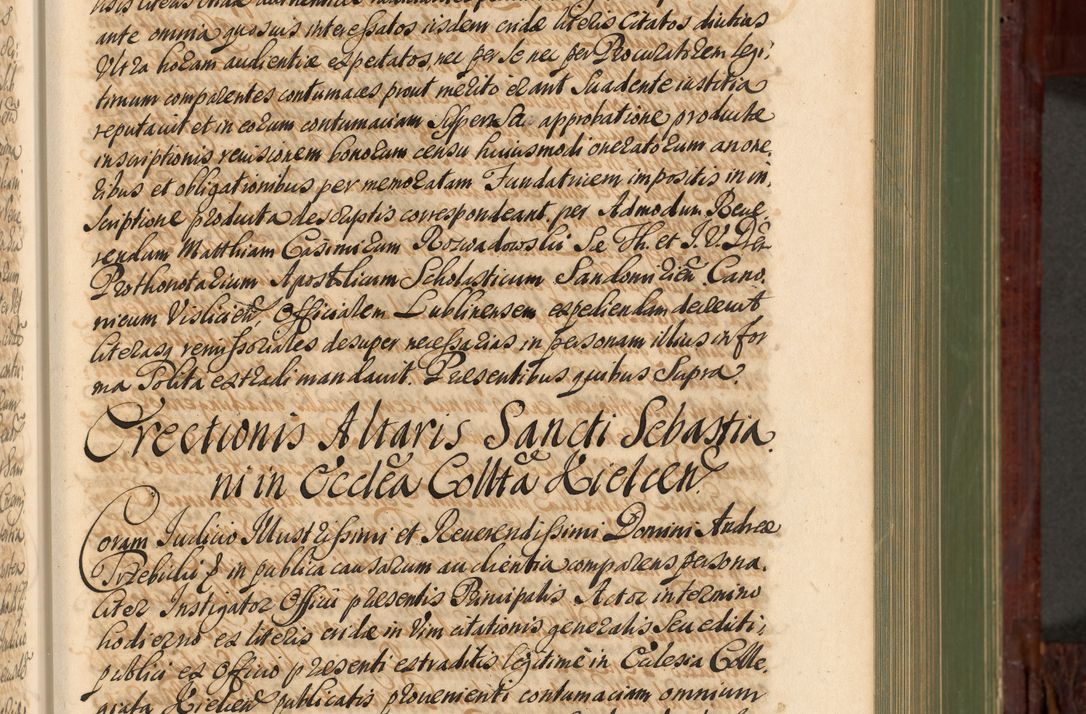 ante omnia quosuis interessatos iisdem eridæ literis citatos diutius
Vltra horam audientiæ expectatos, nec per se nec per Procuratorem legi,
timum comparentes contumaces prout merito erant Suadente iustitia
reputauit et in eorum contumaciam approbatione productæ
inscriptionis reuisionem bonorum censu huiusmodi oneratorum an one,
ribus et obligationibus per memoratam Fundatricem impositis in in,
scriptione producta descriptis correspondeant, per Admodum Reue,
rendum Matthiam Casimirum Roswadowski S.æ Th. et I. V. D.
Prothonotarium Apostolicum Scholasticum Sandomirien Cano,
nicum Vislicien, Officialem Lublinensem expediendam decreuit
literasq remissoriales desuper necessarias in personam illius in for
ma Solita extradi mandauit. Præsentibus quibus Supra.
Erectionis Altaris Sancti Sebastia,
ni in Ecclea Collta Kielcen
Coram Iudicio Illustrissimi et Reuerendissimi Domini Andreæ
Trzebicki in publica causarum audientia comparens persona,
liter Instigator Officii præsentis Principalis Actor in termino
hodierno ex literis eridæ in Vim citationis generalis Seu edicti,
publici ex Officio præsenti extraditis legitimè in Ecclesia Colle,
giata Kielcen publicatis prouenienti contumaciam omnium